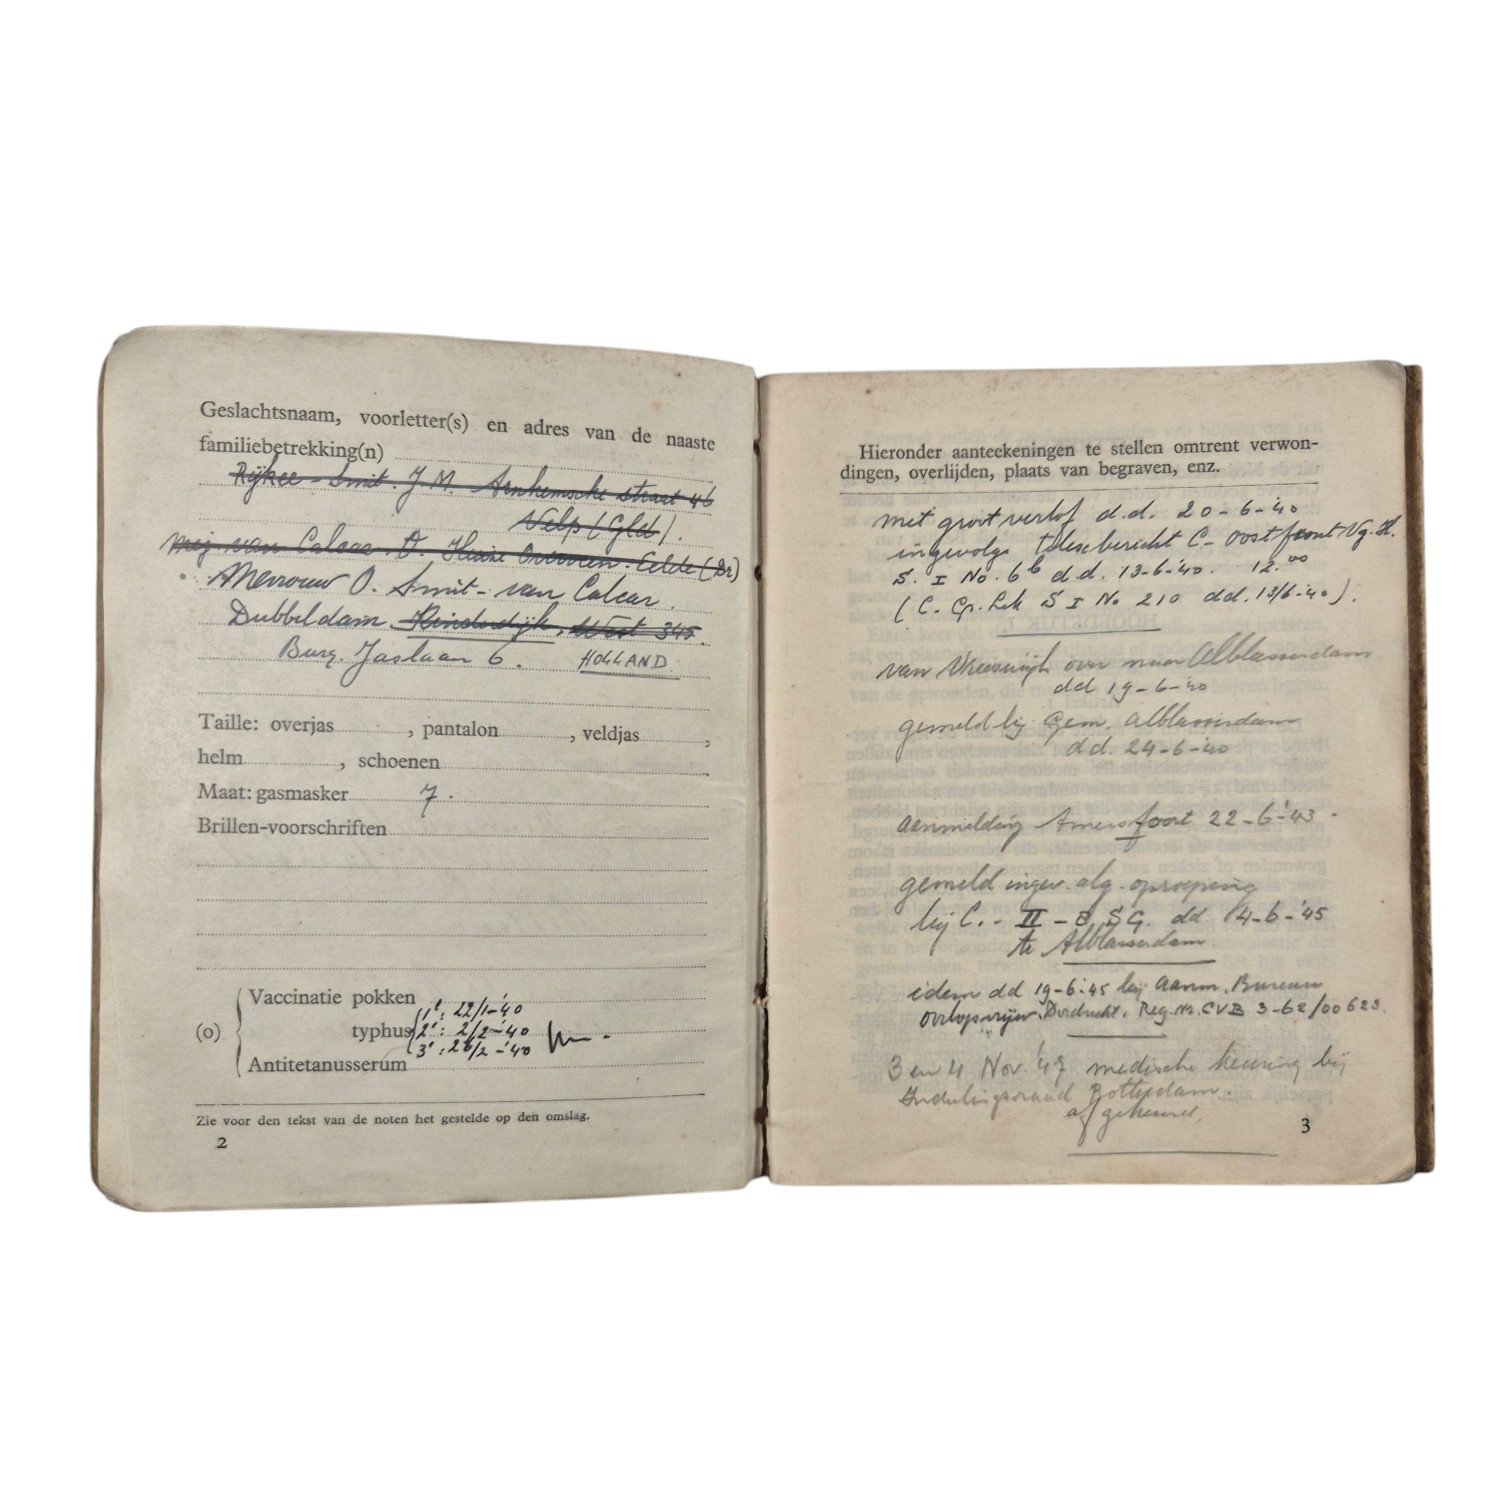 Geslachtsnaam, voorletter(s) en adres van de naaste
familiebetrekking(n)
Smit. J.M. Arnhemsche straat 46
Velp (Gld).
mej. van Calcar. O. Huize Eelde (Dr)
Mevrouw O. Smit-van Calcar.
Dubbeldam. Kinderdijk, West 345.
Burg. Jaslaan 6. HOLLAND
Taille: overjas , pantalon , veldjas ,
helm , schoenen
Maat: gasmasker 7.
Brillen-voorschriften
Vaccinatie pokken
1e: 22/1-'40
(o) typhus 2e: 2/2-'40
3e: 26/2-'40
Antitetanusserum
Zie voor den tekst van de noten het gestelde op den omslag.
2
Hieronder aanteekeningen te stellen omtrent verwon-
dingen, overlijden, plaats van begraven, enz.
met groot verlof d.d. 20-6-'40
ingevolge telexbericht C- Oostfront Vg. H.
S. I No. 6b d.d. 13-6-'40. 12.00
(C. Gp. Lek S I No 210 dd. 13/6-'40).
van Vreeswijk over naar Alblasserdam
dd 19-6-'40
gemeld bij Gem. Alblasserdam
dd. 24-6-'40
aanmelding Amersfoort 22-6-'43.
gemeld ingev. alg. oproeping
bij C.- II - 8, S.G. dd 14-6-'45
te Alblasserdam
idem dd 19-6-'45 bij Aanm. Bureau
Dordrecht. Reg. Nr. CVB 3-62/00623.
3 en 4 Nov. '47 medische keuring bij
Indelingsraad Rotterdam.
afgekeurd.
3